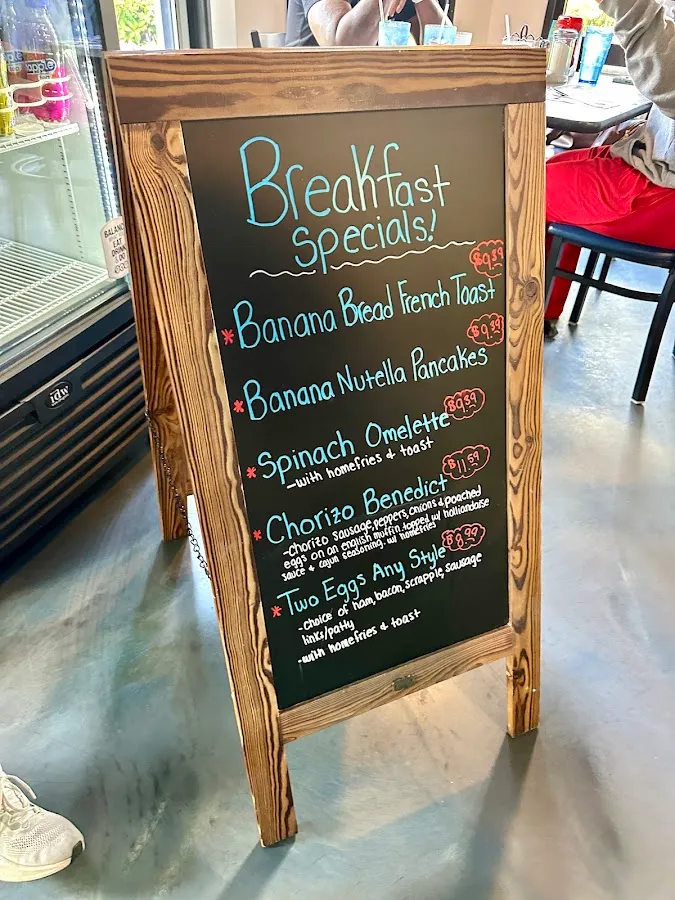 Breakfast
Specials!
$9.89
*Banana Bread French Toast
$9.89
*Banana Nutella Pancakes
$9.89
*Spinach Omelette
-with homefries & toast
$11.59
*Chorizo Benedict
-Chorizo sausage, peppers, onions & poached
eggs on an english muffin. topped w/ hollandaise
sauce & cajun seasoning. w/ homefries
$8.99
*Two Eggs Any Style
-Choice of ham, bacon, scrapple, sausage
links/patty
-with homefries & toast
idw
BALANC
EAT
DRINK